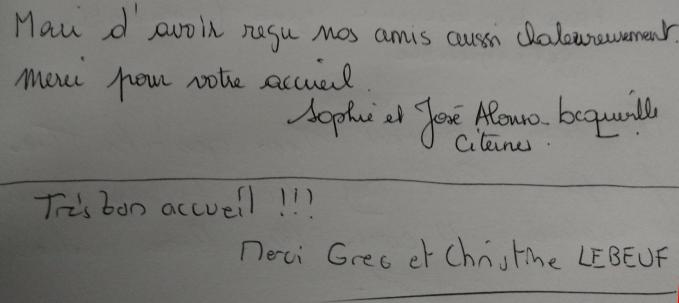 Merci d'avoir reçu nos amis aussi chaleureusement.
Merci pour votre accueil.
Sophie et José Alonso-
Citernes.
Très bon accueil !!!
Merci Greg et Christine LEBEUF